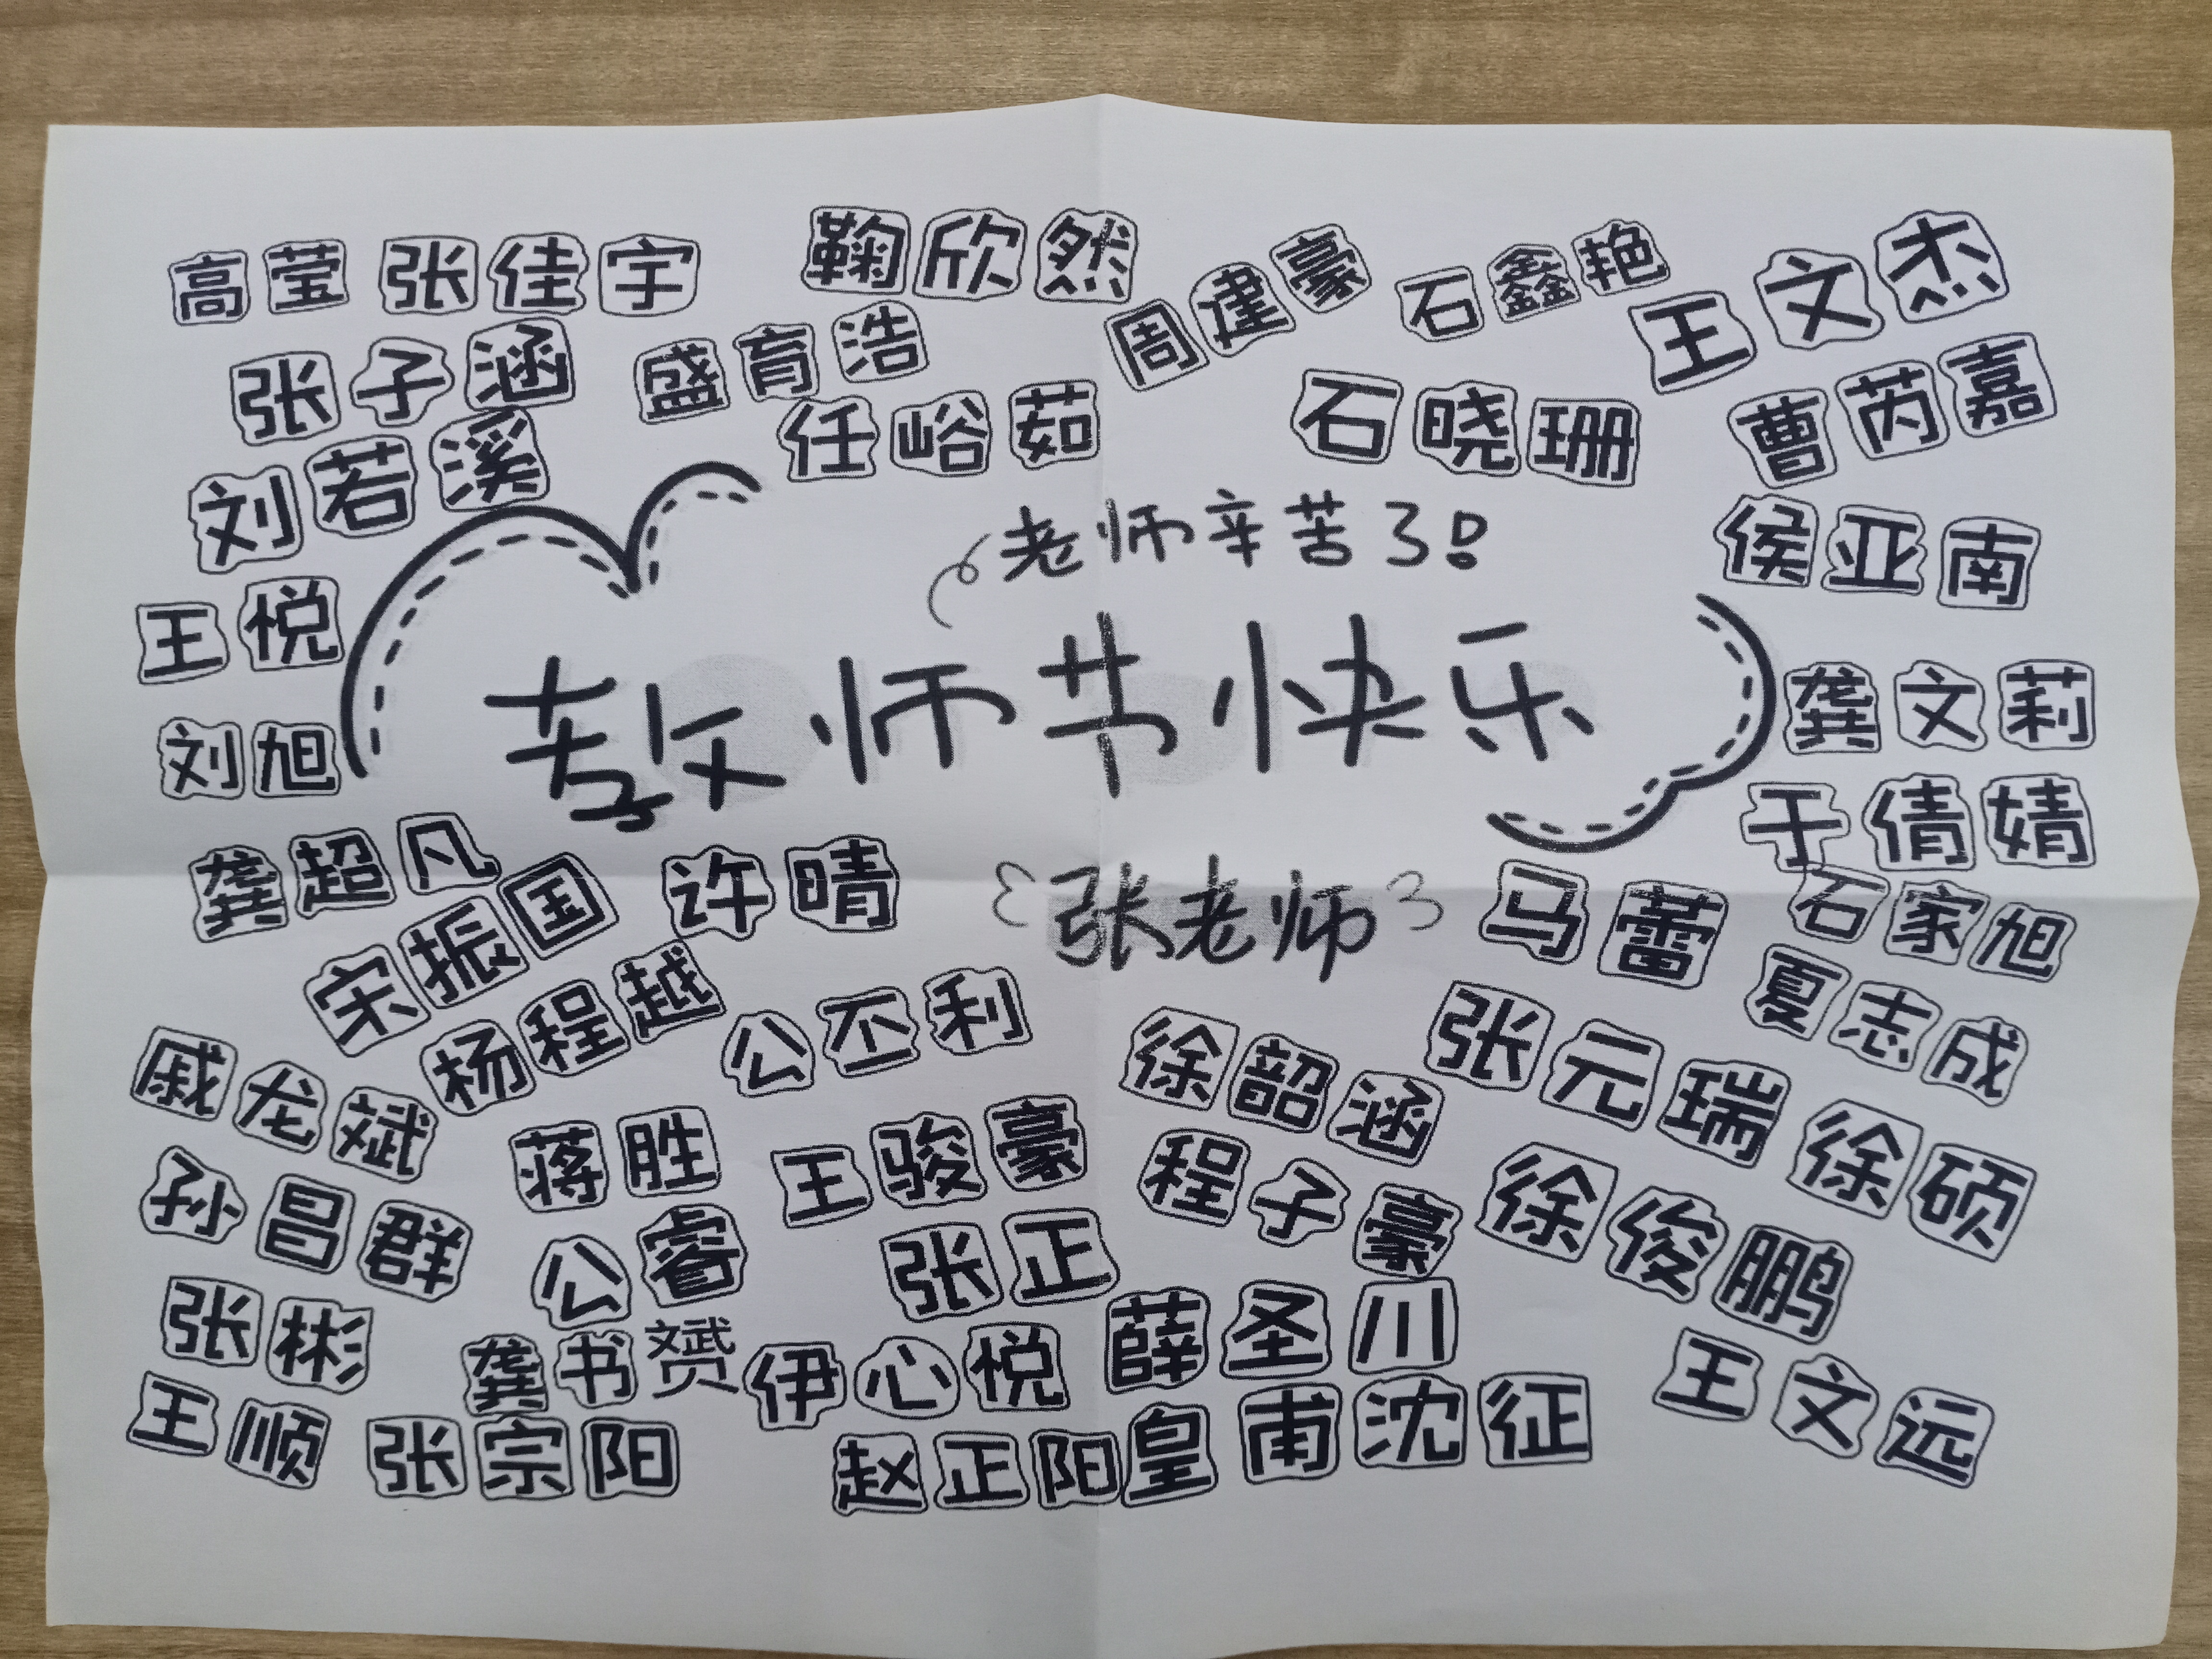 高莹 张佳宇 鞠欣然
周建豪 石鑫艳 王文杰
张子涵 盛育浩
任峪茹 石晓珊 曹芮嘉
刘若溪
老师辛苦了!
侯亚南
王悦
教师节快乐
龚文莉
刘旭
于倩婧
龚超凡 许晴
{张老师}
马蕾 石家旭
宋振国
夏志成
杨程越 公丕利
徐韶涵 张元瑞 徐硕
戚龙斌
蒋胜 王骏豪 程子豪 徐俊鹏
孙昌群 公睿 张正
张彬 龚书赟 伊心悦 薛圣川
王文远
王顺 张宗阳 赵正阳 皇甫沈征